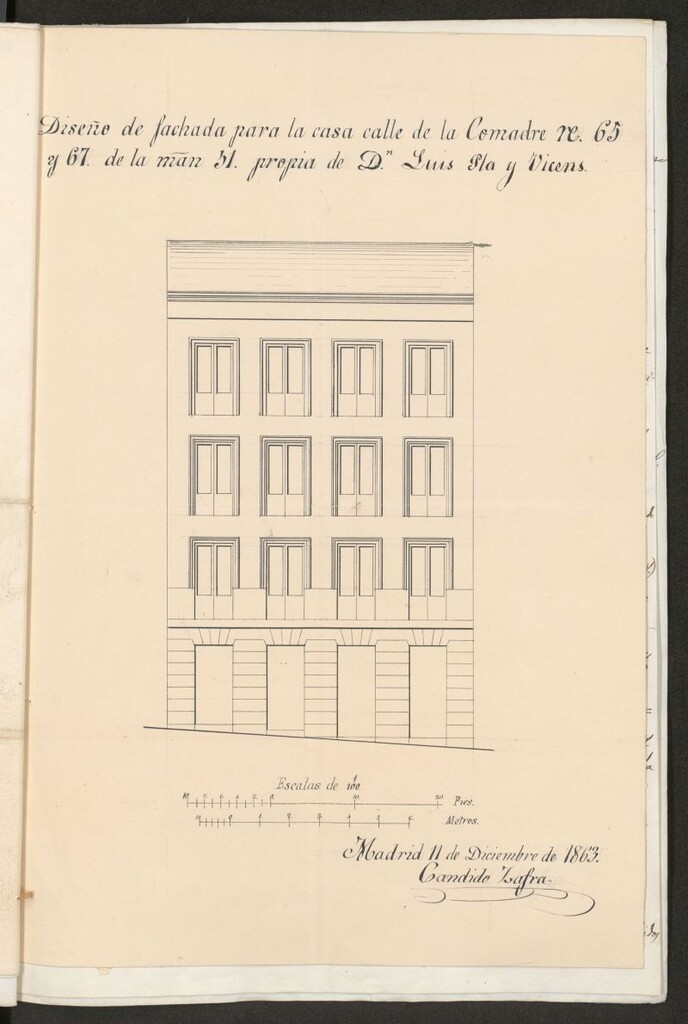 Diseño de fachada para la casa calle de la Comadre nº. 65
y 67. de la mān 31. propia de D.n Luis Pla y Vicens.
Escalas de 1/100
Pies.
Metros.
Madrid 11 de Diciembre de 1863.
Candido Zafra